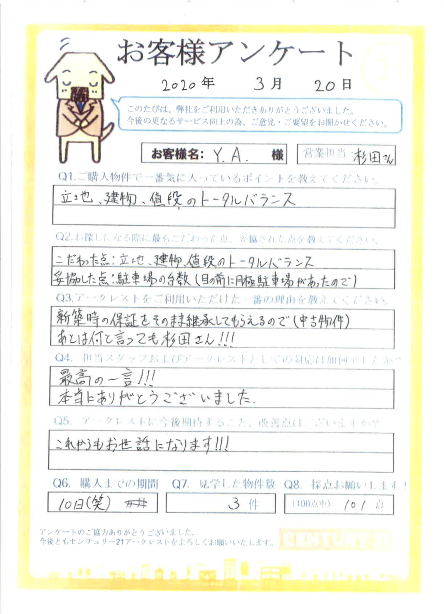 お客様アンケート
2020年 3月 20日
このたびは、弊社をご利用いただきありがとうございました。
今後の更なるサービス向上の為、ご意見・ご要望をお聞かせください。
お客様名: Y.A. 様 営業担当 杉田さん
Q1.ご購入物件で一番気に入っているポイントを教えてください。
立地、建物、値段のトータルバランス
Q2.お探しになる際に最もこだわった点、妥協された点を教えてください。
こだわった点:立地、建物、値段のトータルバランス
妥協した点:駐車場の台数(目の前に月極駐車場があったので)
Q3.アークレストをご利用いただけた一番の理由を教えてください。
新築時の保証をそのまま継承してもらえるので(中古物件)
あとは何と言っても杉田さん!!!
Q4. 担当スタッフおよびアークレストとしての対応は如何でしたか?
最高の一言!!!
本当にありがとうございました。
Q5. アークレストに今後期待すること、改善点はございますか?
これからもお世話になります!!!
Q6. 購入までの期間 Q7. 見学した物件数 Q8. 採点お願いします!
10日(笑) 3件 (100点中) 101点
アンケートのご協力ありがとうございました。
今後ともセンチュリー21アークレストをよろしくお願いいたします。
CENTURY 21